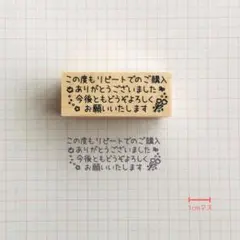 この度もリピートでのご購入
ありがとうございました
今後ともどうぞよろしく
お願いいたします
この度もリピートでのご購入
ありがとうございました
今後ともどうぞよろしく
お願いいたします
1cmマス